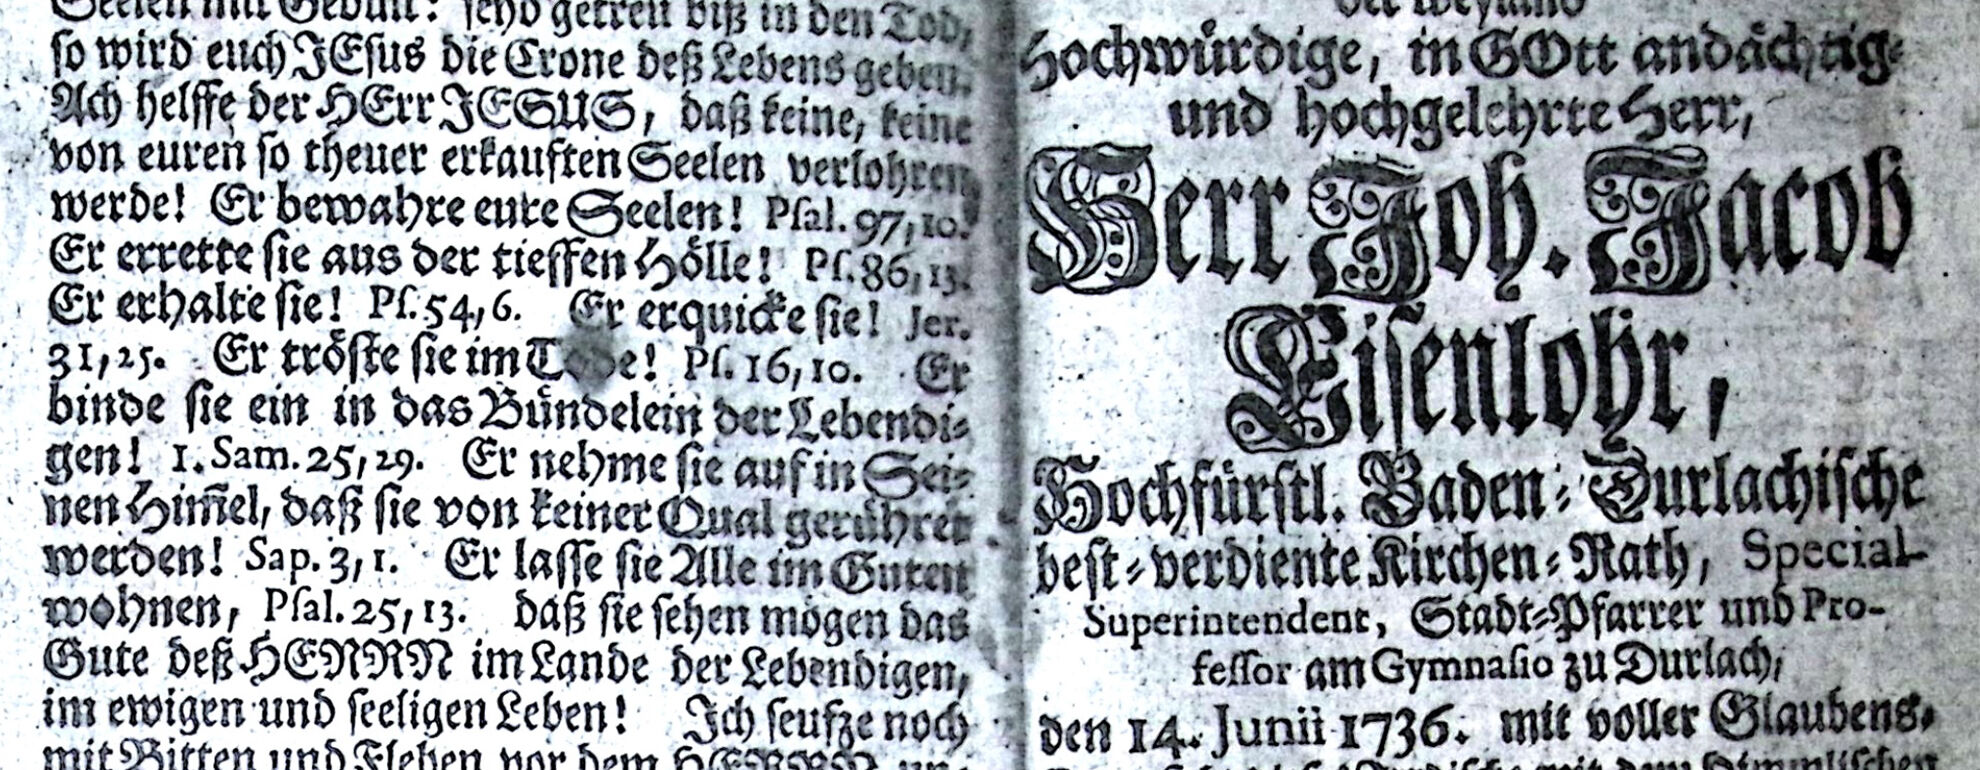 Seelen mit Gedult: seyd getreu biß in den Tod,
so wird euch JEsus die Crone deß Lebens geben.
Ach helffe der HErr JESUS, daß keine, keine
von euren so theuer erkauften Seelen verlohren
werde! Er bewahre eure Seelen! Psal. 97, 10.
Er errette sie aus der tieffen Hölle! Ps. 86, 13.
Er erhalte sie! Ps. 54, 6. Er erquicke sie! Jer.
31, 25. Er tröste sie im Tode! Ps. 16, 10. Er
binde sie ein in das Bündelein der Lebendi-
gen! 1. Sam. 25, 29. Er nehme sie auf in Sei-
nen Him̃el, daß sie von keiner Qual gerühret
werden! Sap. 3, 1. Er lasse sie Alle im Guten
wohnen, Psal. 25, 13. daß sie sehen mögen das
Gute deß HERRN im Lande der Lebendigen,
im ewigen und seeligen Leben! Ich seufze noch
mit Bitten und Flehen vor dem HERRN
der weyland
Hochwürdige, in GOtt andächtig-
und hochgelehrte Herr,
Herr Joh. Jacob
Eisenlohr,
Hochfürstl. Baden-Durlachische
best-verdiente Kirchen-Rath, Special-
Superintendent, Stadt-Pfarrer und Pro-
fessor am Gymnasio zu Durlach,
den 14. Junii 1736. mit voller Glaubens-
mit dem Himmlischen